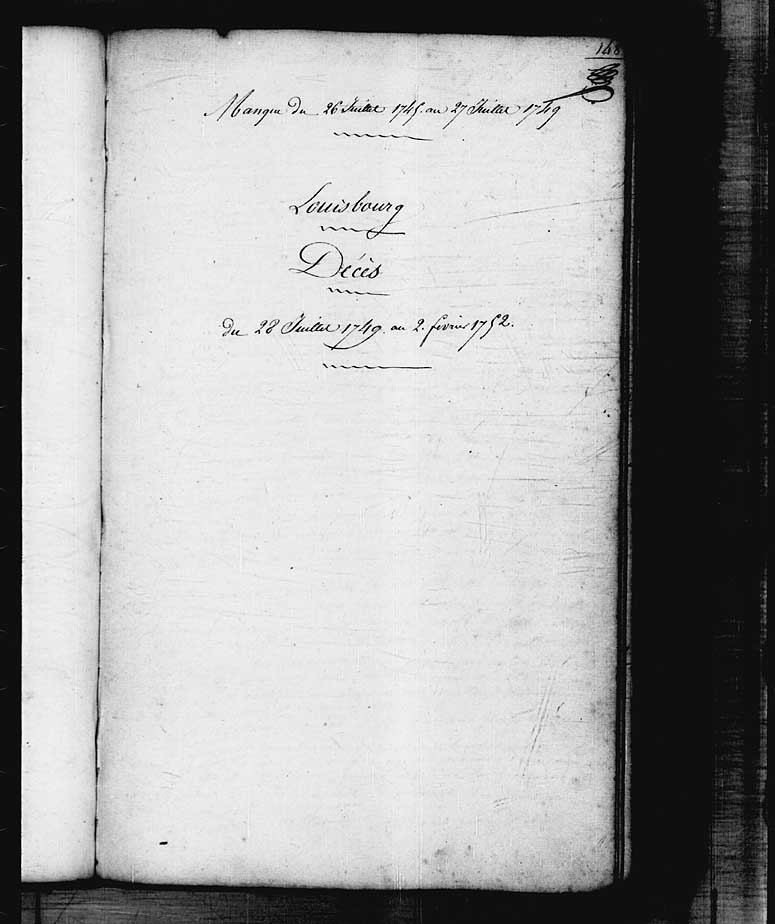 148
Manque du 26 Juillet 1745. au 27 Juillet 1749
Louisbourg
Décès
du 28 Juillet 1749. au 2. février 1752.